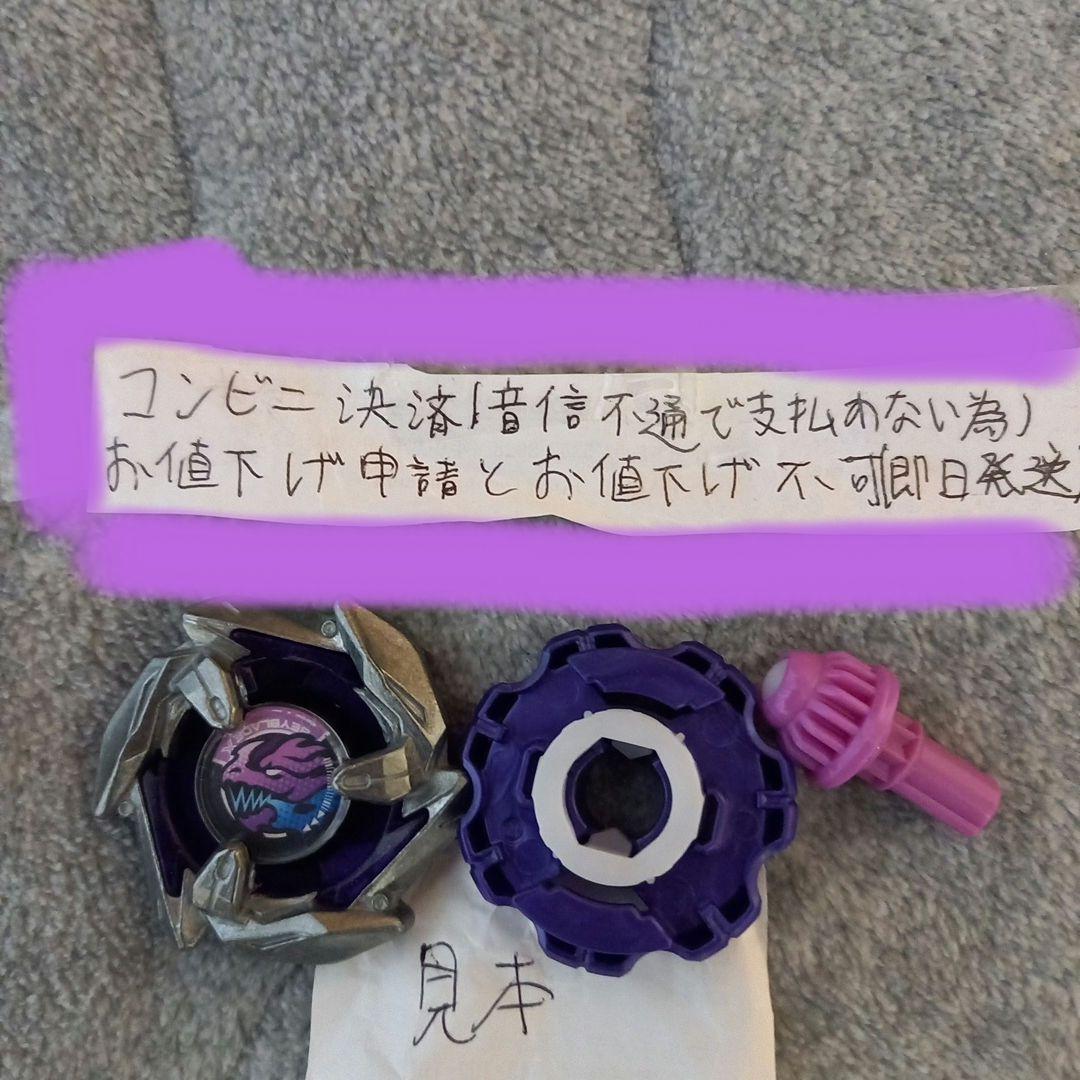 コンビニ決済(音信不通で支払わない為)
お値下げ申請とお値下げ不可(即日発送)
BEYBLADE
見本